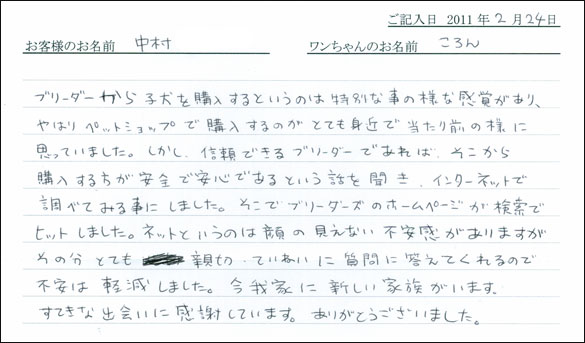 ご記入日 2011年2月24日
お客様のお名前 中村 ワンちゃんのお名前 ころん
ブリーダーから子犬を購入するというのは特別な事の様な感覚があり、
やはりペットショップで購入するのがとても身近で当たり前の様に
思っていました。しかし、信頼できるブリーダーであれば、そこから
購入する方が安全で安心であるという話を聞き、インターネットで
調べてみる事にしました。そこでブリーダーズのホームページが検索で
ヒットしました。ネットというのは顔の見えない不安感がありますが
その分とても親切・ていねいに質問に答えてくれるので
不安は軽減しました。今我家に新しい家族がいます。
すてきな出会いに感謝しています。ありがとうございました。